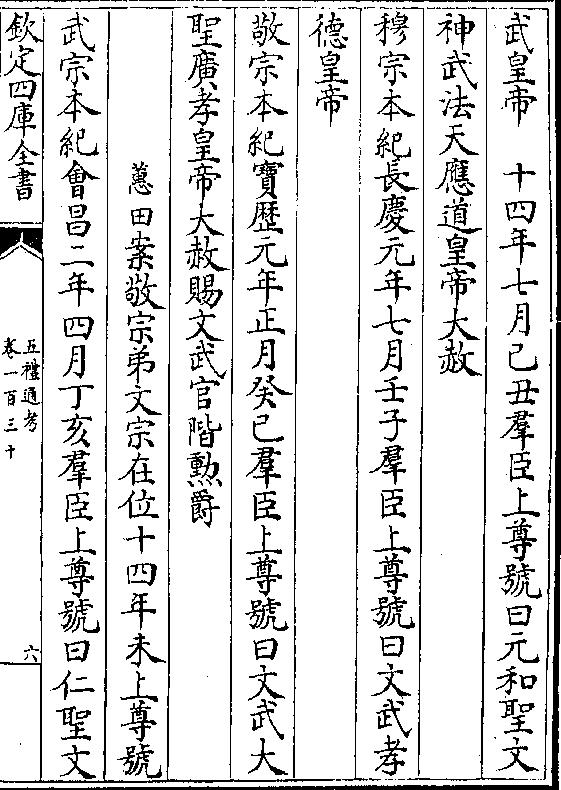 武皇帝　十四年七月己丑羣臣上尊號曰元和聖文
神武法天應道皇帝大赦
穆宗本紀長慶元年七月壬子羣臣上尊號曰文武孝
德皇帝
敬宗本紀寶歴元年正月癸巳羣臣上尊號曰文武大
聖廣孝皇帝大赦賜文武官階勲爵
蕙田案敬宗弟文宗在位十四年未上尊號
武宗本紀會昌二年四月丁亥羣臣上尊號曰仁聖文
欽定四庫全書
五禮通考
卷一百三十
六